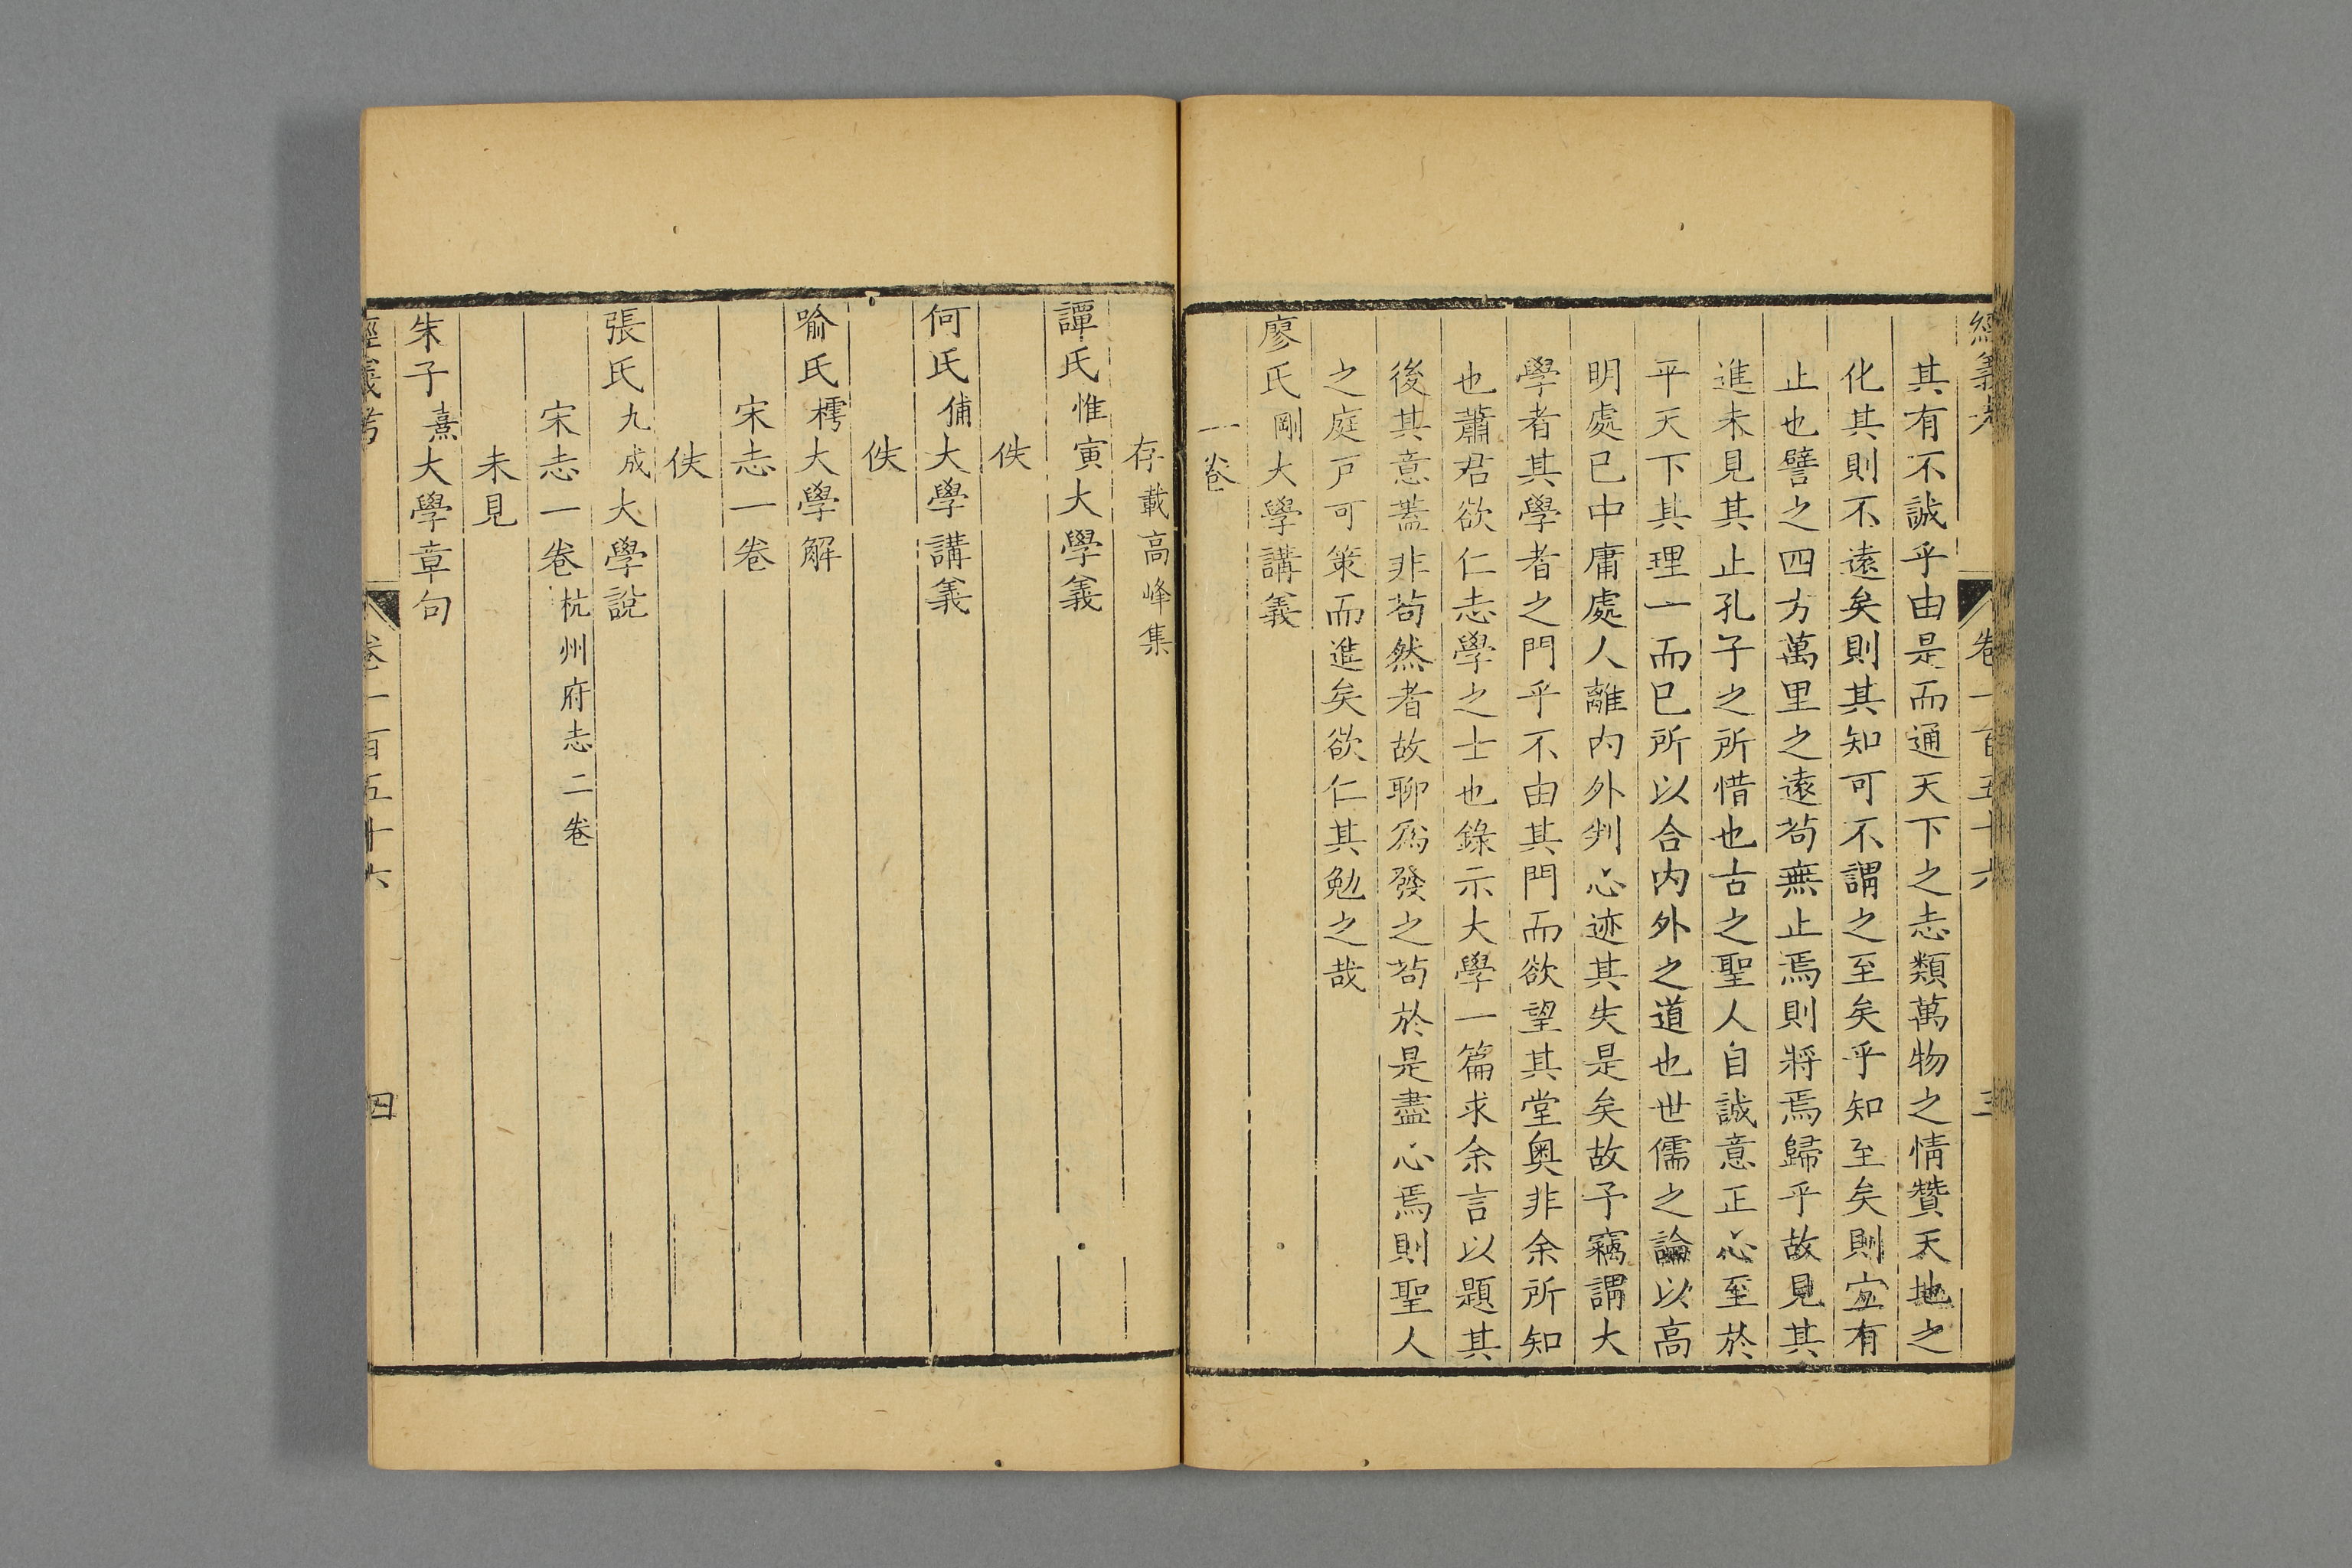 經義考 卷一百五十六 三
其有不誠乎由是而通天下之志類萬物之情贊天地之
化其則不遠矣則其知可不謂之至矣乎知至矣則宜有
止也譬之四方萬里之遠茍無止焉則將焉歸乎故見其
進未見其止孔子之所惜也古之聖人自誠意正心至於
平天下其理一而已所以合内外之道也世儒之論以高
明處已中庸處人離内外判心迹其失是矣故予竊謂大
學者其學者之門乎不由其門而欲望其堂奥非余所知
也蕭君欲仁志學之士也錄示大學一篇求余言以題其
後其意葢非茍然者故聊為發之茍於是盡心焉則聖人
之庭戸可策而進矣欲仁其勉之哉
廖氏剛大學講義
一卷
存載高峰集
譚氏惟寅大學義
佚
何氏俌大學講義
佚
喻氏樗大學解
宋志一卷
佚
張氏九成大學說
宋志一卷杭州府志二卷
未見
朱子熹大學章句
經義考 卷一百五十六 四